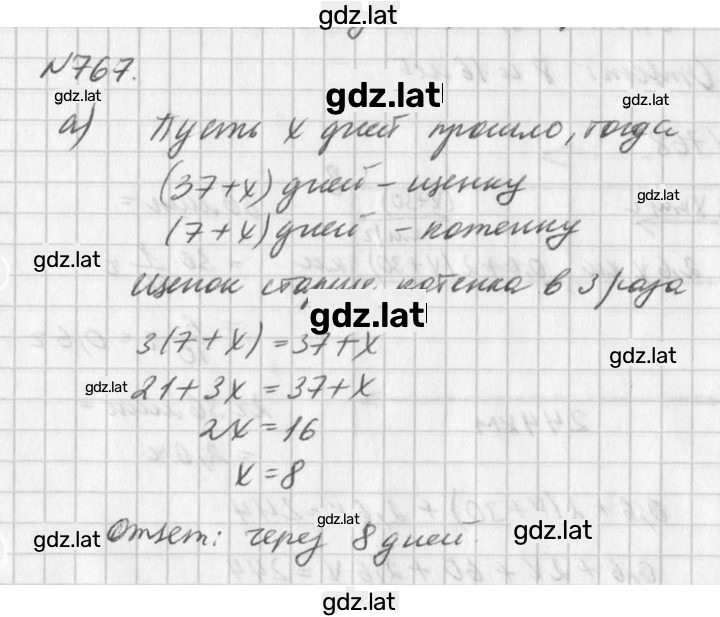 gdz.lat
№767.
gdz.lat
gdz.lat
gdz.lat
а) Пусть x дней прошло, тогда
(37+x) дней - щенку
gdz.lat
(7+x) дней - котенку
gdz.lat
Щенок старше котенка в 3 раза
gdz.lat
3(7+x)=37+x
gdz.lat
gdz.lat
21+3x=37+x
2x=16
x=8
gdz.lat
gdz.lat
gdz.lat
Ответ: через 8 дней.
gdz.lat